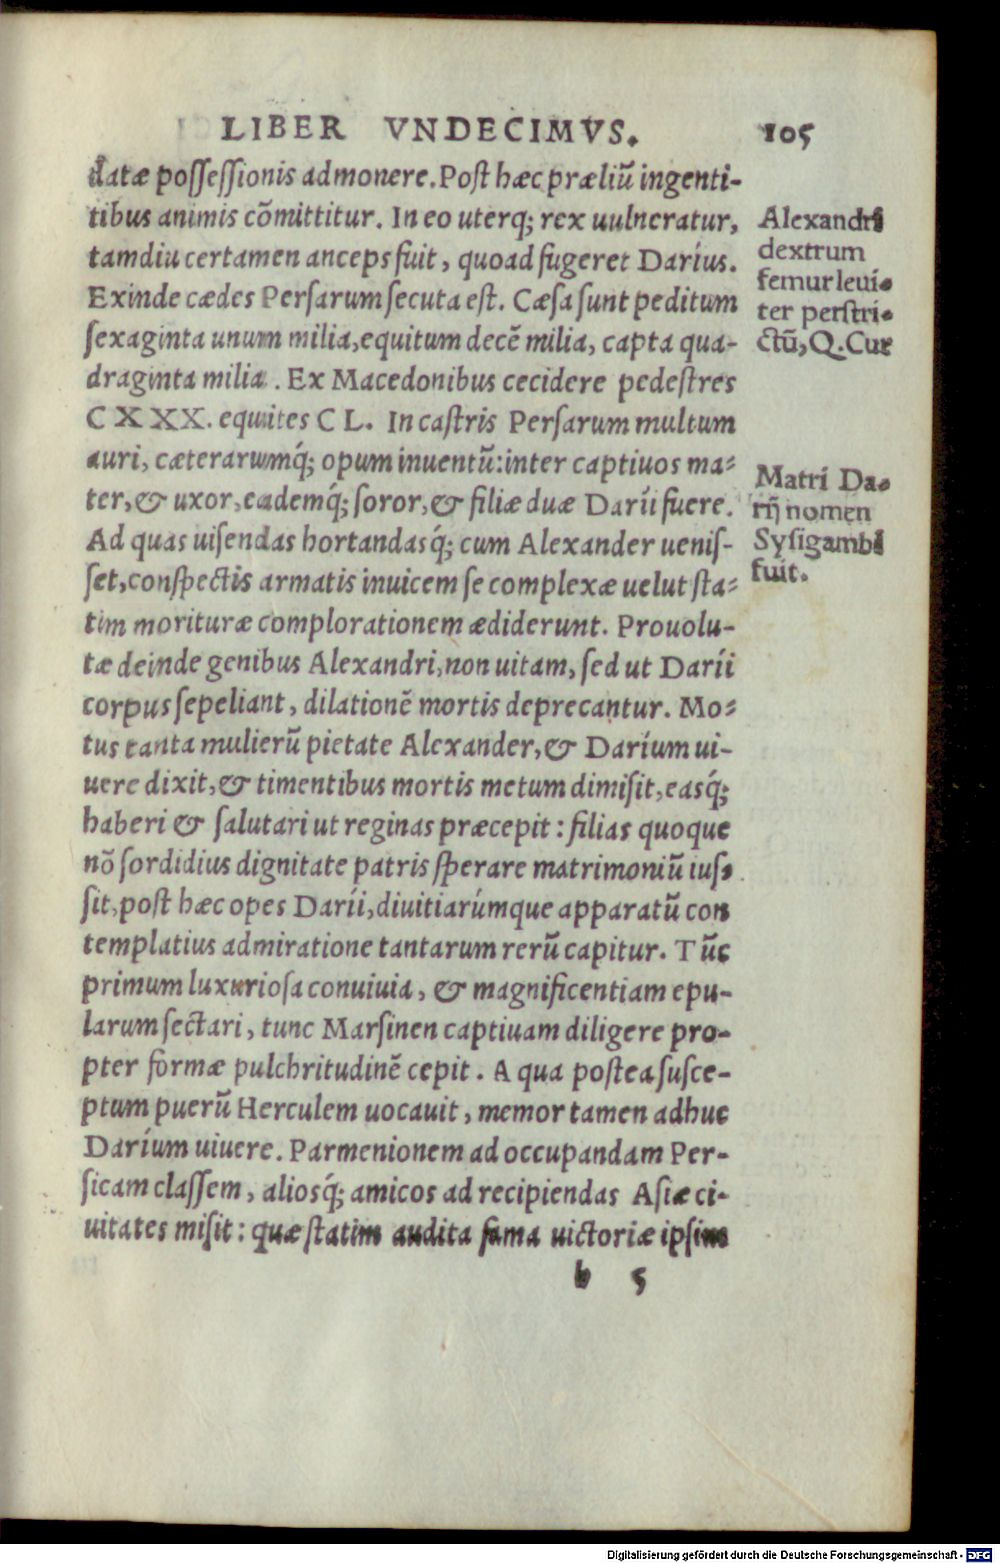 LIBER VNDECIMVS. 105
datæ possessionis admonere. Post hæc præliũ ingenti-
tibus animis cõmittitur. In eo uterq; rex uulneratur,
tamdiu certamen anceps fuit, quoad fugeret Daríus.
Exinde cædes Persarum secuta est. Cæsa sunt peditum
sexaginta unum milia, equitum decẽ milia, capta qua-
draginta milia. Ex Macedonibus cecidere pedestres
CXXX. equites CL. In castris Persarum multum
auri, cæterarumq́; opum inuentũ: inter captiuos ma-
ter, & uxor, eademq́; soror, & filiæ duæ Daríi fuere.
Ad quas uisendas hortandasq́; cum Alexander uenis-
set, conspectis armatis inuicem se complexæ uelut sta-
tim morituræ complorationem ædiderunt. Prouolu-
tæ deinde genibus Alexandri, non uitam, sed ut Daríi
corpus sepeliant, dilationẽ mortis deprecantur. Mo-
tus tanta mulierũ pietate Alexander, & Daríum ui-
uere dixit, & timentibus mortis metum dimisit, easq́;
haberi & salutari ut reginas præcepit: filias quoque
nõ sordidius dignitate patris sperare matrimoniũ ius-
sit, post hæc opes Daríi, diuitiarúmque apparatũ con
templatius admiratione tantarum rerũ capitur. Tũc
primum luxuriosa conuiuia, & magnificentiam epu-
larum sectari, tunc Marsinen captiuam diligere pro-
pter formæ pulchritudinẽ cepit. A qua postea susce-
ptum puerũ Herculem uocauit, memor tamen adhuc
Daríum uiuere. Parmenionem ad occupandam Per-
sicam classem, aliosq́; amicos ad recipiendas Asiæ ci-
uitates misit: quæ statim audita fama uictoriæ ipsim
b 5
Alexandri
dextrum
femur leui-
ter perstri-
ctũ, Q. Cur
Matri Da-
rij nomen
Sysigambi
fuit.
Digitalisierung gefördert durch die Deutsche Forschungsgemeinschaft - DFG